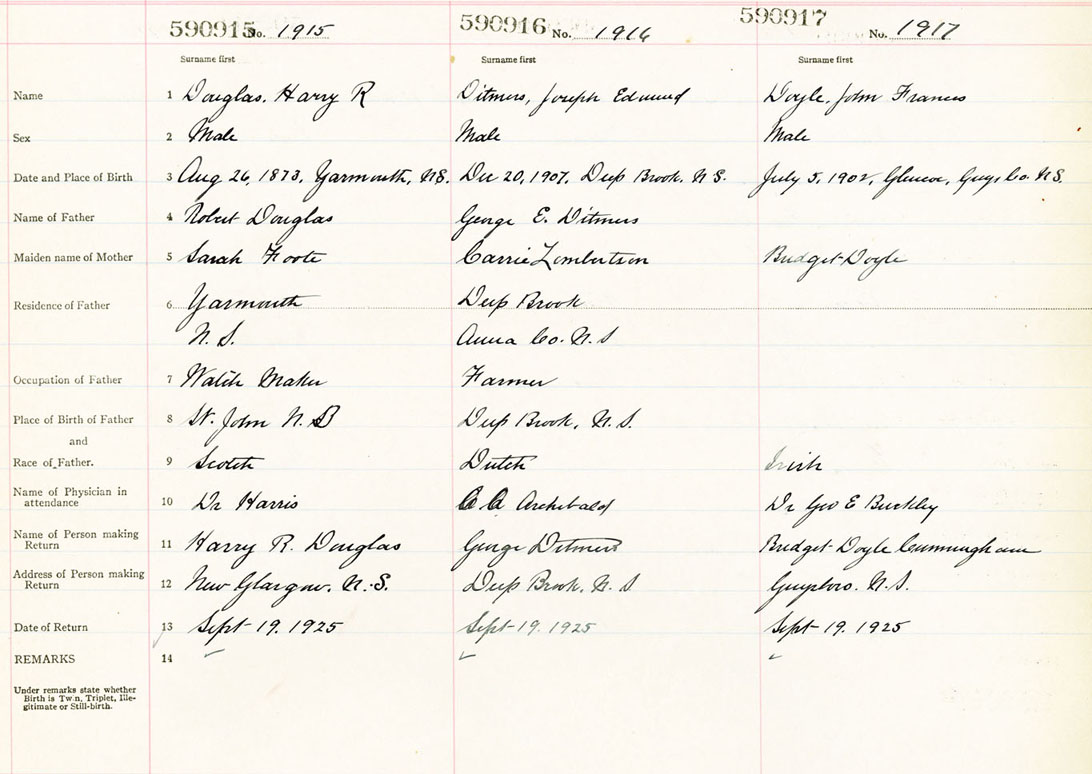 590915 No. 1915 590916 No. 1916 590917 No. 1917
Surname first Surname first Surname first
Name 1 Douglas, Harry R Ditmers, Joseph Edmund Doyle, John Francis
Sex 2 Male Male Male
Date and Place of Birth 3 Aug 26, 1873, Yarmouth, NS. Dec 20, 1907, Deep Brook, N S. July 5, 1902, Glencoe, Guys Co. N.S.
Name of Father 4 Robert Douglas George E. Ditmers
Maiden name of Mother 5 Sarah Foote Carrie Lambertson Bridget Doyle
Residence of Father 6 Yarmouth Deep Brook
N. S. Anna Co. N. S
Occupation of Father 7 Watch Maker Farmer
Place of Birth of Father 8 St. John N. B Deep Brook, N. S.
and
Race of Father. 9 Scotch Dutch Irish
Name of Physician in
attendance 10 Dr Harris Archibald Dr Geo E Buckley
Name of Person making
Return 11 Harry R. Douglas George Ditmers Bridget Doyle Cunningham
Address of Person making
Return 12 New Glasgow, N. S. Deep Brook, N. S Guysboro. N. S.
Date of Return 13 Sept 19. 1925 Sept 19. 1925 Sept 19. 1925
REMARKS 14
Under remarks state whether
Birth is Twin, Triplet, Ille-
gitimate or Still-birth.